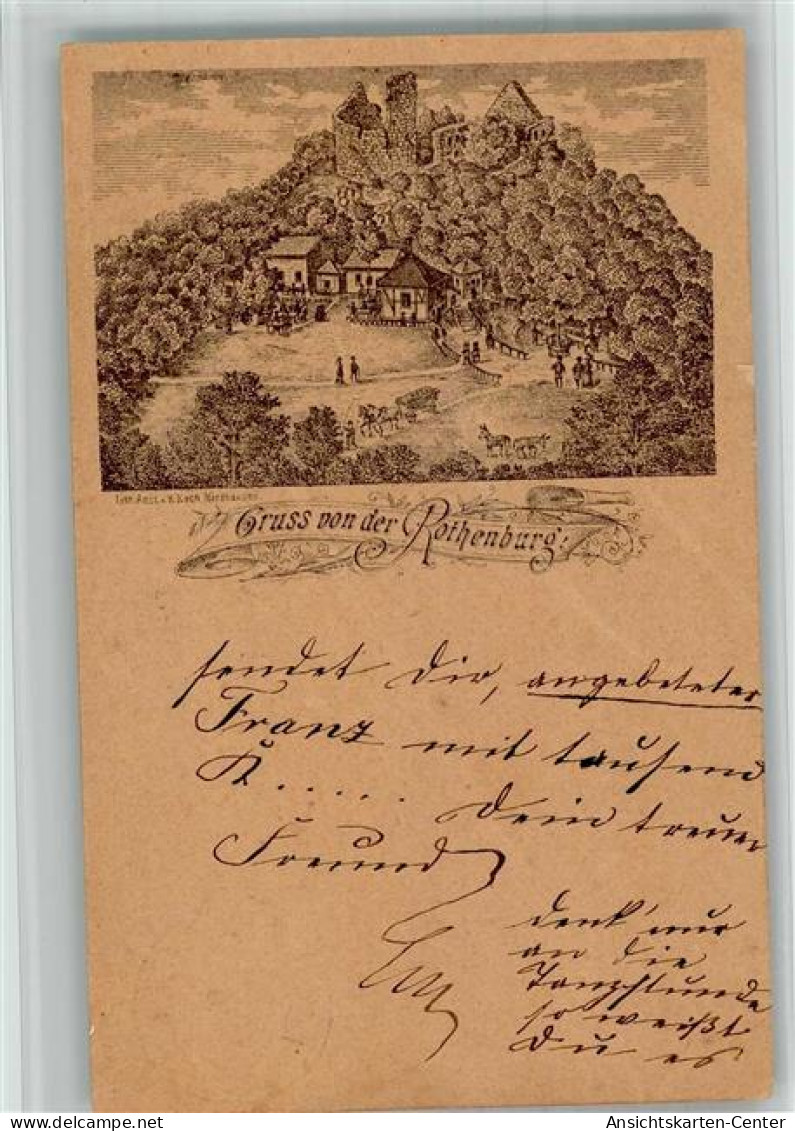 Lith. Anst. v. H. Koch Nordhausen.
Gruss von der Rothenburg!
sendet Dir, angebeteter
Franz mit tausend
K..... Dein treuer
Freund
denk' nur
an die
Tanzstunde
so weißt
Du es
Ansichtskarten-Center